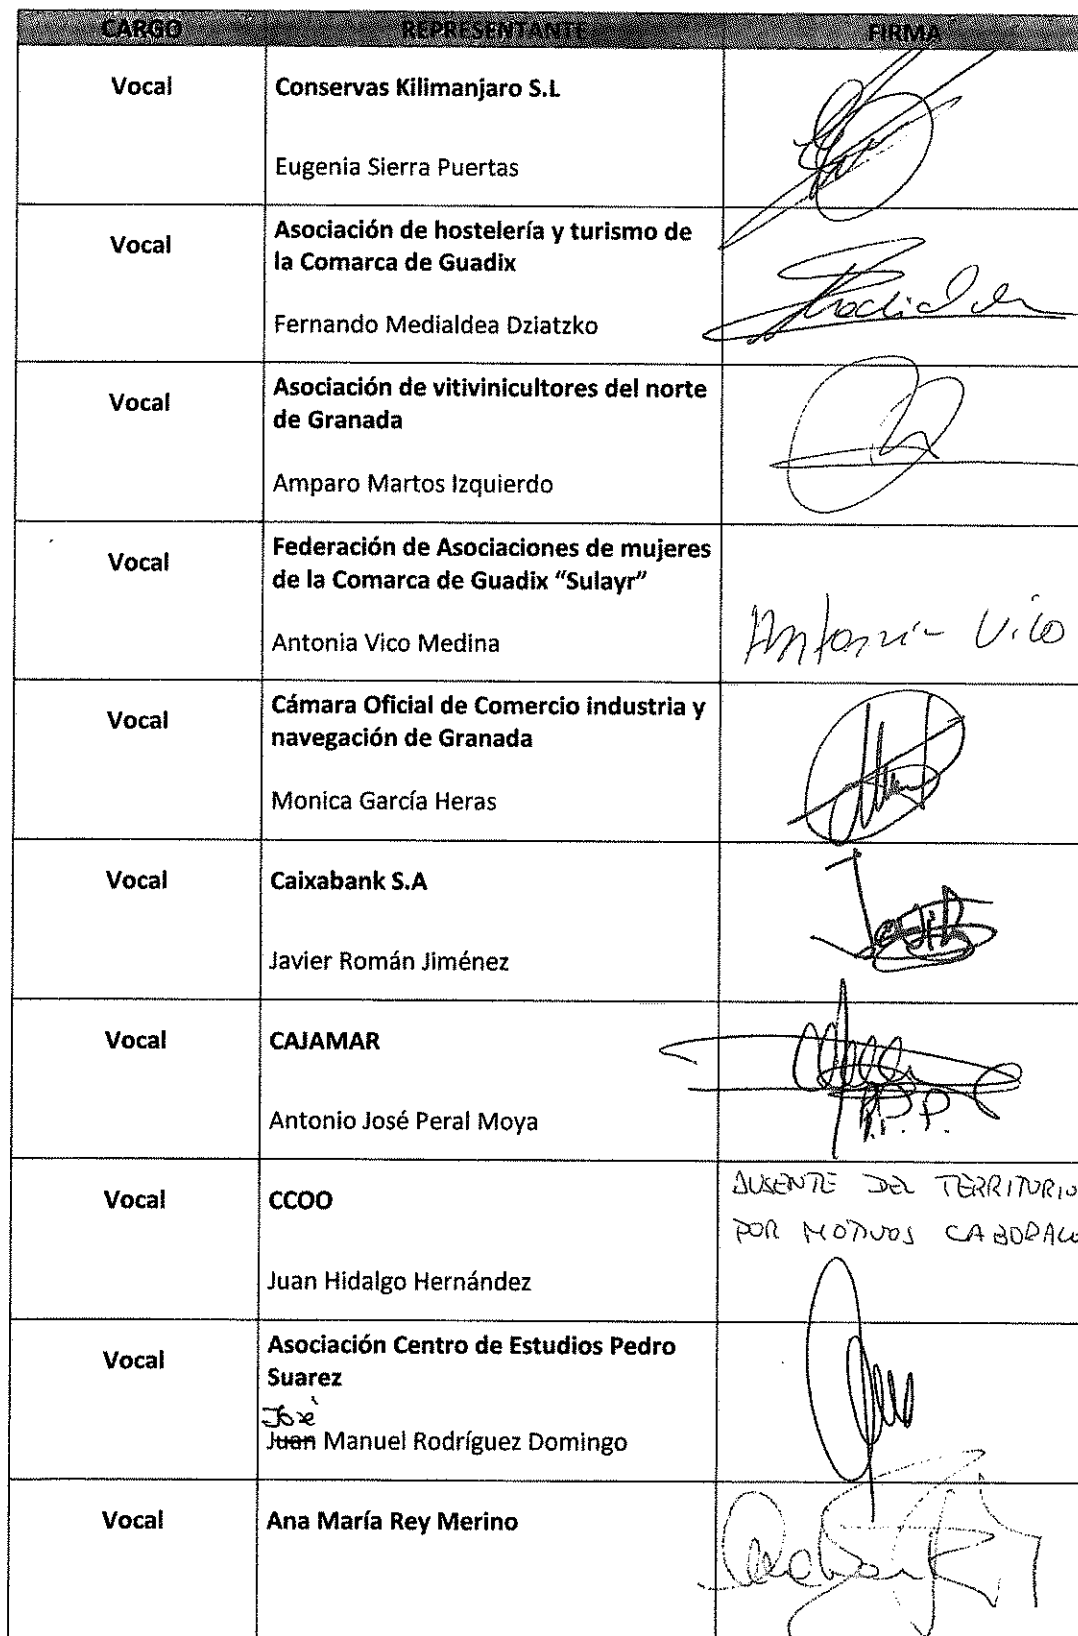 CARGO REPRESENTANTE FIRMA
Vocal Conservas Kilimanjaro S.L
Eugenia Sierra Puertas
Vocal Asociación de hostelería y turismo de
la Comarca de Guadix
Fernando Medialdea Dziatzko
Vocal Asociación de vitivinicultores del norte
de Granada
Amparo Martos Izquierdo
Vocal Federación de Asociaciones de mujeres
de la Comarca de Guadix “Sulayr”
Antonia Vico Medina Antonia Vico
Vocal Cámara Oficial de Comercio industria y
navegación de Granada
Monica García Heras
Vocal Caixabank S.A
Javier Román Jiménez
Vocal CAJAMAR
Antonio José Peral Moya P.P.
Vocal CCOO AUSENTE DEL TERRITORIO
POR MOTIVOS LABORALE
Juan Hidalgo Hernández
Vocal Asociación Centro de Estudios Pedro
Suarez
José
Juan Manuel Rodríguez Domingo
Vocal Ana María Rey Merino